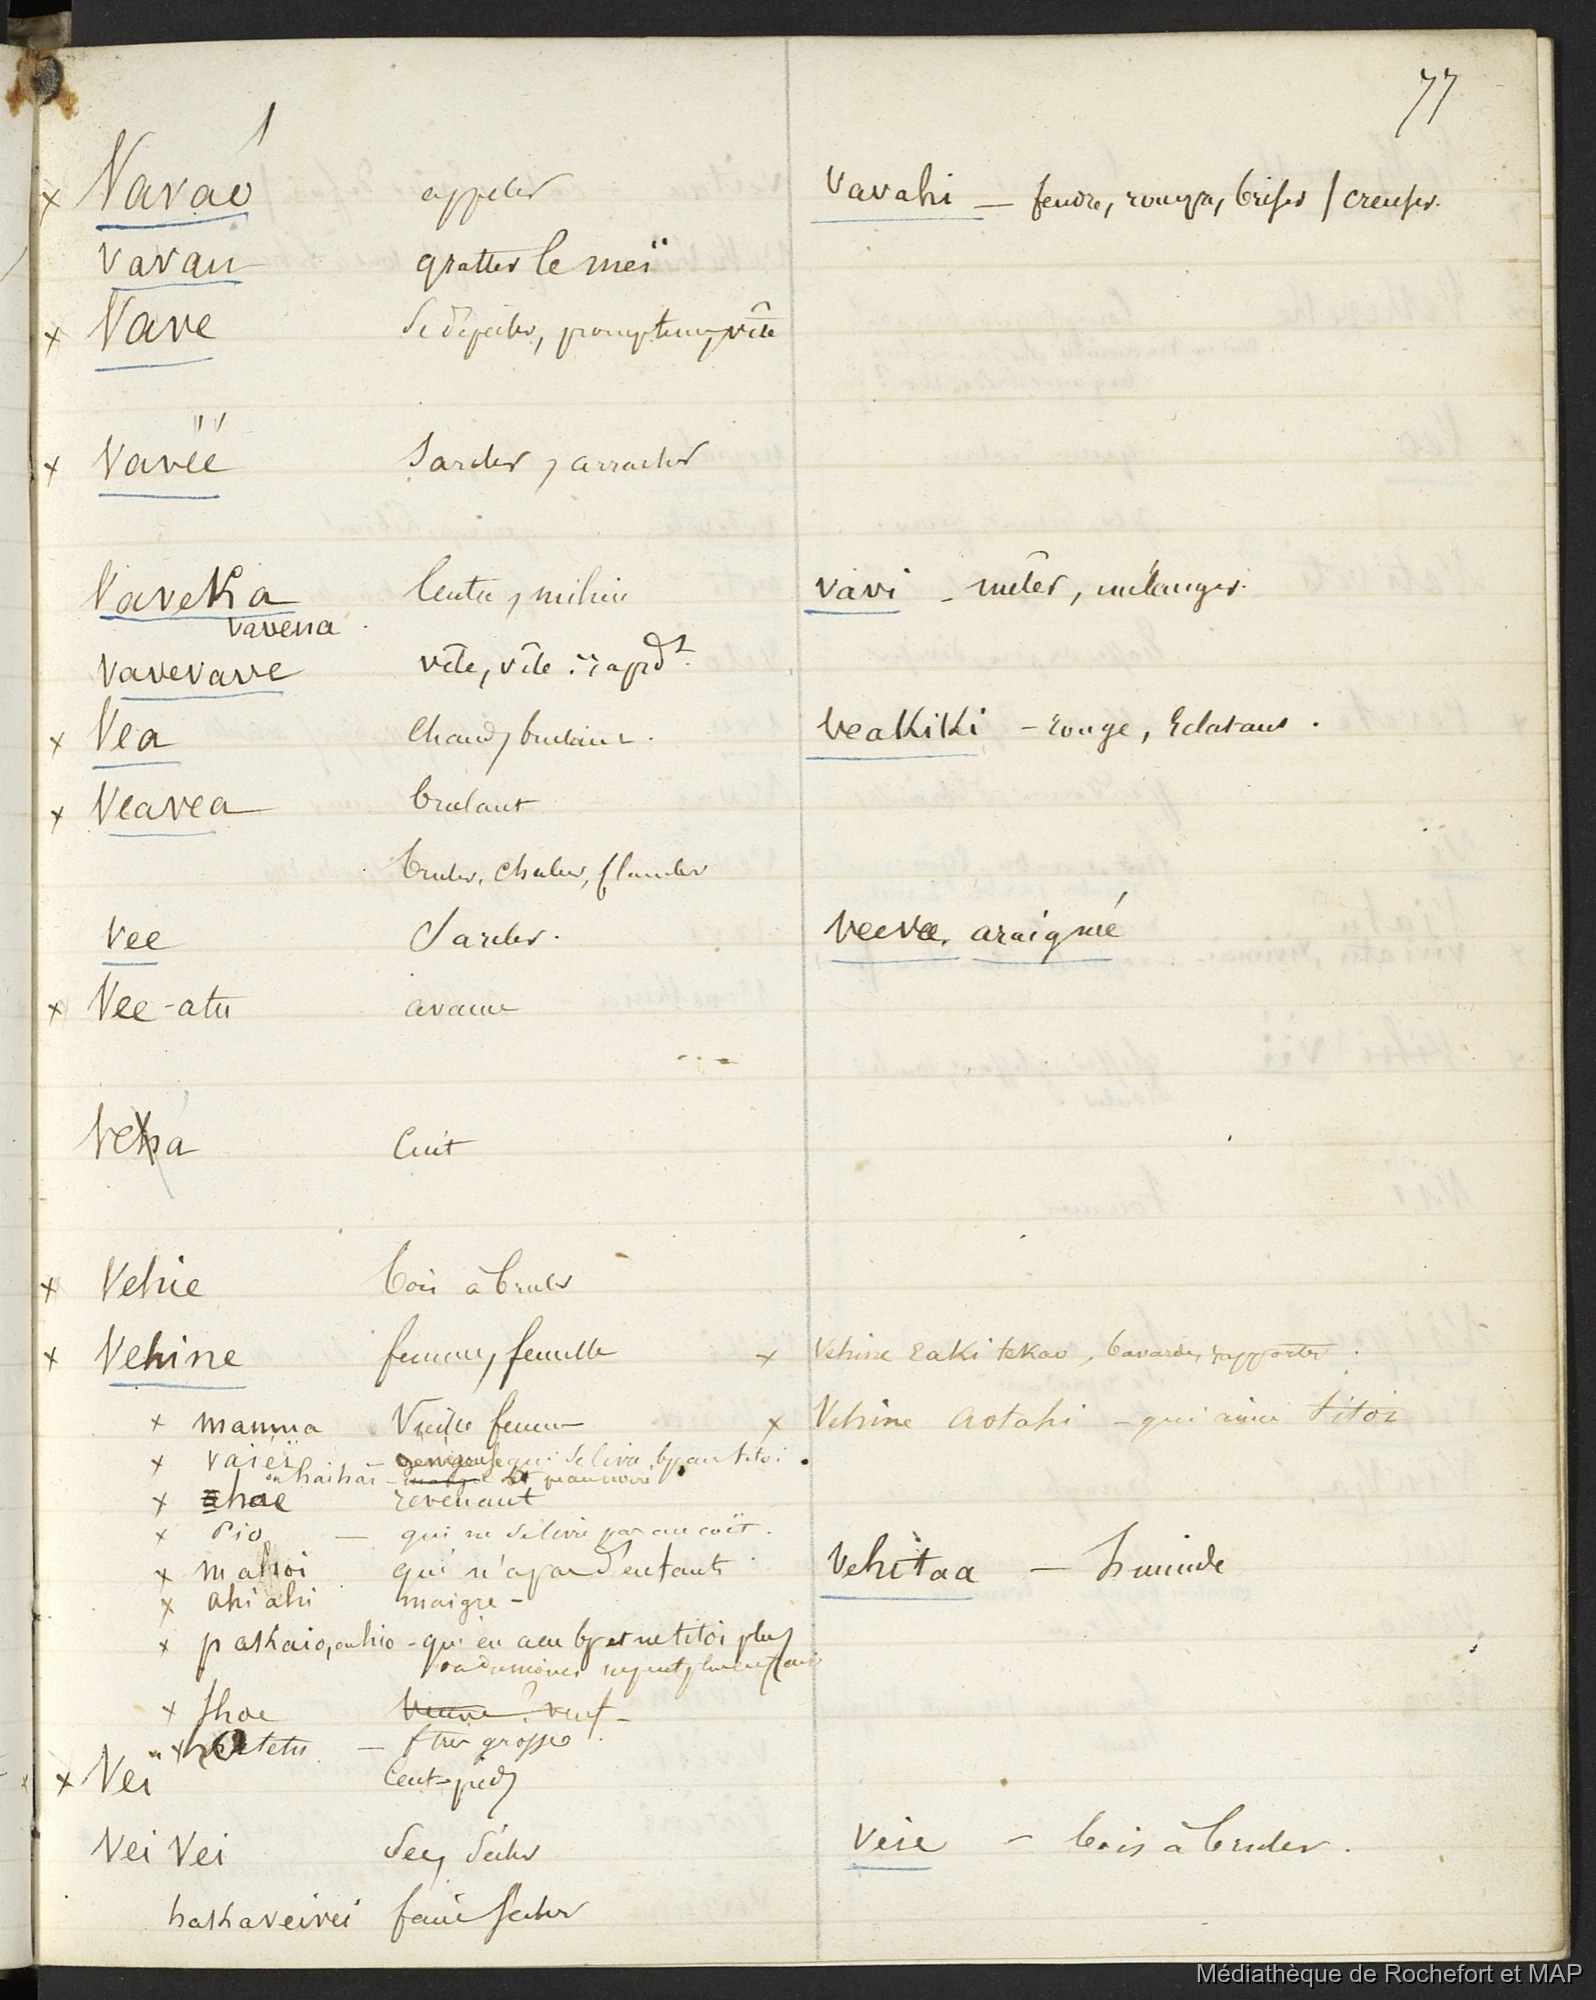 77
x Vavaó appeler
vavau gratter le meï
x Vave Se dépecher, promptement, vîte
x Vavëé Sarcler, arracher
Vaveka Centre, milieu
vavena
vavevave vîte, vîte
x Vea Chaud, brulant.
x Veavea brulant
bruler, Chaleur, flamber
vee Sarcler.
x Vee-atu avance
Veha Cuit
x Vehie bois à bruler
x Vehine femme, femelle
x mamua Vieille femme
x vaieï qui se livre
ou haihai
x ahoe revenant
x Pio — qui ne se livre pas au coït.
x mahoi qui n'a pas d'enfants
x ahiahi maigre -
x pakaio, ou hio - qui en a eu et ne titoi plus
x hoe veuve ? veuf -
x tetu — très grosse
x Veï Cent-pieds
Vei Vei Sec, Sécher
hakaveivei faire Secher
vavahi — fendre, rompre, briser / creuser.
vavi - mêler, mélanger.
veakiki - rouge, éclatant.
veevee. araignée
x Vehine eaki tekao, bavarde, rapporter.
x Vehine aotahi - qui aime titoi
Vehitaa — humide
Veie - bois à bruler.
Médiathèque de Rochefort et MAP